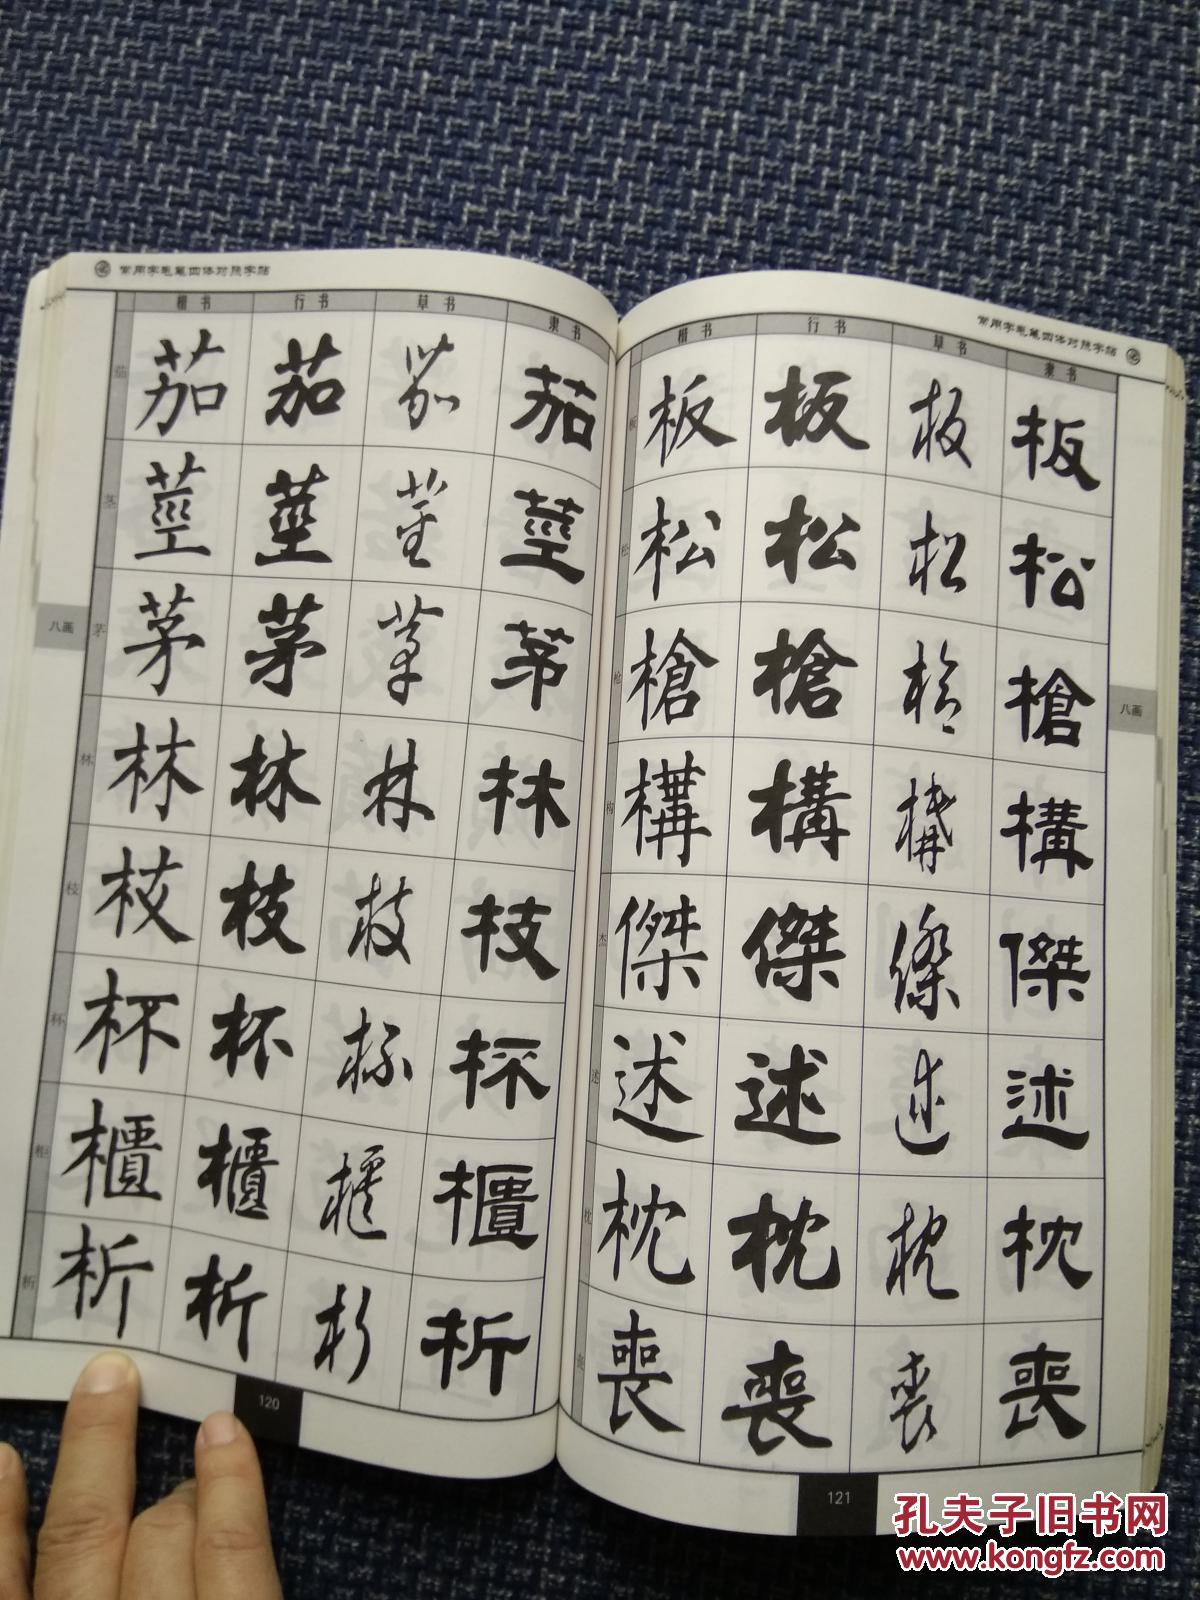 常用字毛笔四体对照字帖
楷书 行书 草书 隶书
茄 茄 茄 茄 茄
茎 莖 莖 莖 莖
茅 茅 茅 茅 茅
林 林 林 林 林
枝 枝 枝 枝 枝
杯 杯 杯 杯 杯
柜 櫃 櫃 櫃 櫃
析 析 析 析 析
八画
120
常用字毛笔四体对照字帖
楷书 行书 草书 隶书
板 板 板 板 板
松 松 松 松 松
枪 槍 槍 槍 槍
构 構 構 構 構
杰 傑 傑 傑 傑
述 述 述 述 述
枕 枕 枕 枕 枕
丧 喪 喪 喪 喪
八画
121
孔夫子旧书网
www.kongfz.com